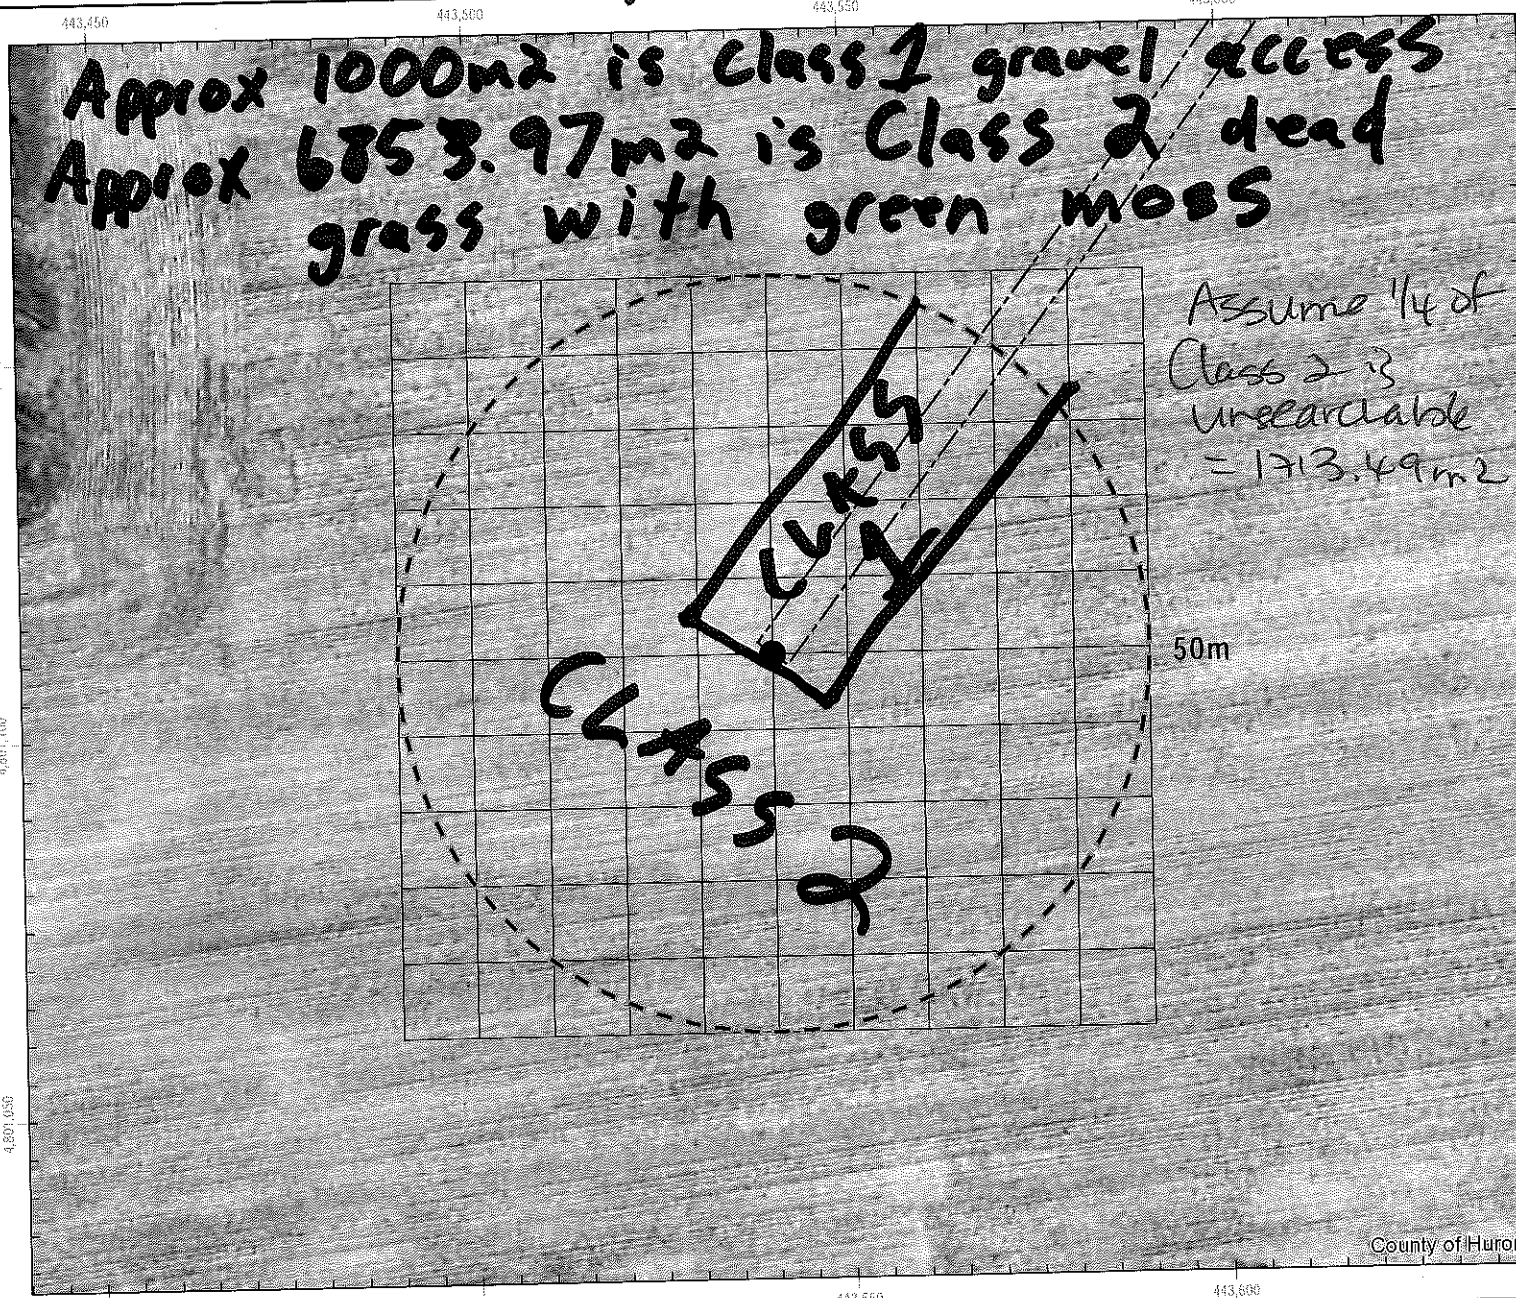 443,450
443,500
443,550
Approx 1000m2 is Class 1 gravel access
Approx 6853.97m2 is Class 2 dead
grass with green moss
Assume 1/4 of
Class 2 is
unsearchable
= 1713.49m2
CLASS
1
50m
CLASS 2
4,801,050
County of Huron
443,550
443,600